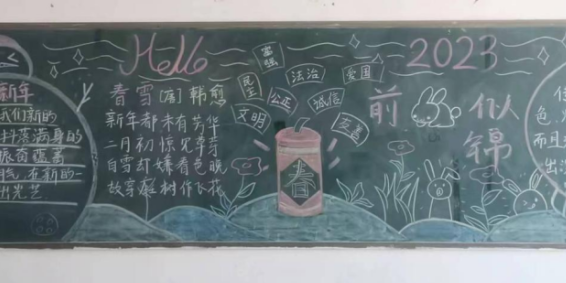 Hello 2023
富强
民主
法治
爱国
公正
诚信
文明
友善
春雪 [唐] 韩愈
新年都未有芳华
二月初惊见草芽
白雪却嫌春色晚
故穿庭树作飞花
春
前 似
锦
新年
我们新的
满身的
新的一
出光艺